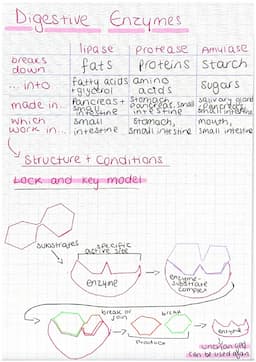 Digestive Enzymes
lipase Protease Amylase
breaks down... fats Proteins Starch
... into fatty acids + glycerol amino acids sugars
made in... Pancreas + small intestine Stomach, Pancreas, small intestine salivary gland, Pancreas, small intestine
which work in... small intestine Stomach, small intestine mouth, small intestine
Structure + Conditions
Lock and key model
substrates
specific active site
enzyme
enzyme-substrate complex
break or join
break
products
enzyme
unchanged
can be used again